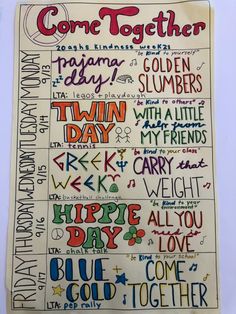 Come Together
20aghs kindness week21
MONDAY 9/13
pajama day!
"be kind to yourself"
GOLDEN SLUMBERS
LTA: legos + playdough
TUESDAY 9/14
TWIN DAY
"be kind to others"
WITH A LITTLE
help from
MY FRIENDS
LTA: tennis
WEDNESDAY 9/15
GREEK WEEK
"be Kind to your Class"
CARRY that
WEIGHT
LTA: basketball challenge
THURSDAY 9/16
HIPPIE DAY
"be Kind to your environment"
ALL YOU
need is
LOVE
LTA: chalk talk
FRIDAY 9/17
BLUE + GOLD
"be Kind to your School"
COME
TOGETHER
LTA: pep rally